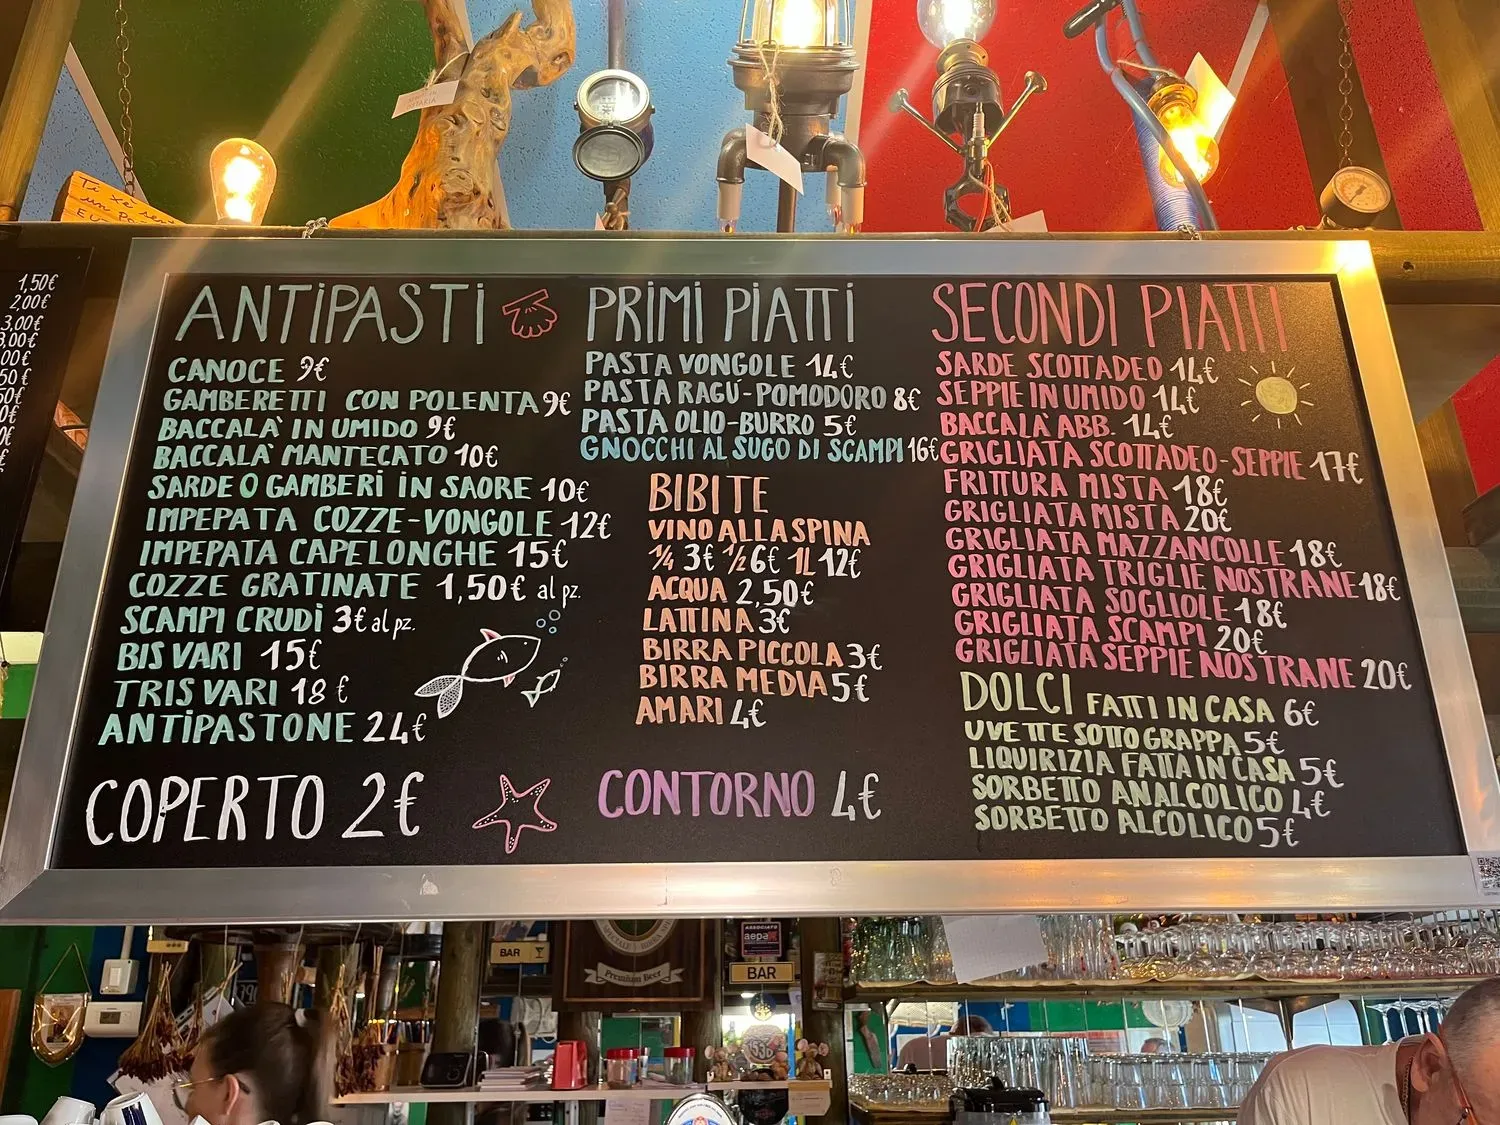 1,50€
2,00€
3,00€
ANTIPASTI
CANOCE 9€
GAMBERETTI CON POLENTA 9€
BACCALA' IN UMIDO 9€
BACCALA' MANTECATO 10€
SARDE O GAMBERI IN SAORE 10€
IMPEPATA COZZE-VONGOLE 12€
IMPEPATA CAPELONGHE 15€
COZZE GRATINATE 1,50€ al pz.
SCAMPI CRUDI 3€ al pz.
BIS VARI 15€
TRIS VARI 18€
ANTIPASTONE 24€
COPERTO 2€
PRIMI PIATTI
PASTA VONGOLE 14€
PASTA RAGÚ-POMODORO 8€
PASTA OLIO-BURRO 5€
GNOCCHI AL SUGO DI SCAMPI 16€
BIBITE
VINO ALLA SPINA
1/4 3€ 1/2 6€ 1L 12€
ACQUA 2,50€
LATTINA 3€
BIRRA PICCOLA 3€
BIRRA MEDIA 5€
AMARI 4€
CONTORNO 4€
SECONDI PIATTI
SARDE SCOTTADEO 14€
SEPPIE IN UMIDO 14€
BACCALÀ ABB. 14€
GRIGLIATA SCOTTADEO-SEPPIE 17€
FRITTURA MISTA 18€
GRIGLIATA MISTA 20€
GRIGLIATA MAZZANCOLLE 18€
GRIGLIATA TRIGLIE NOSTRANE 18€
GRIGLIATA SOGLIOLE 18€
GRIGLIATA SCAMPI 20€
GRIGLIATA SEPPIE NOSTRANE 20€
DOLCI FATTI IN CASA 6€
UVETTE SOTTO GRAPPA 5€
LIQUIRIZIA FATTA IN CASA 5€
SORBETTO ANALCOLICO 4€
SORBETTO ALCOLICO 5€
BAR
Premium Beer
ASSOCIATO
aepe
BAR